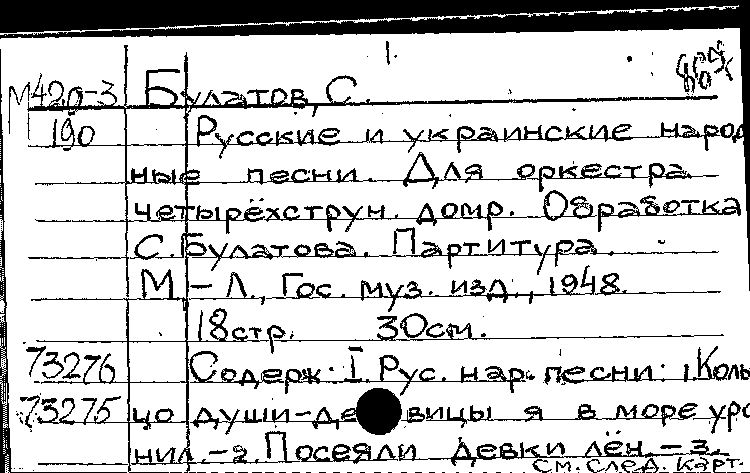 1.
М420-3 Булатов, С.
190 Русские и украинские народ
ные песни. Для оркестра
четырёхструн. домр. Обработка
С. Булатова. Партитура.
М.-Л., Гос. муз. изд., 1948.
18стр. 30см.
73276 Содерж: I. Рус. нар. песни: 1. Коль
73275 цо души-де вицы я в море уро
нил.-2. Посеяли девки лён.-3.
См. след. карт.